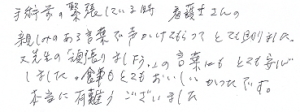 手術前の緊張している時 看護士さんの
親しみのある言葉で声かけてもらってとても助りました。
又先生の頑張りましょう、の言葉にもとても安心
しました。食事もとてもおいしかったです。
本当に有難うございました